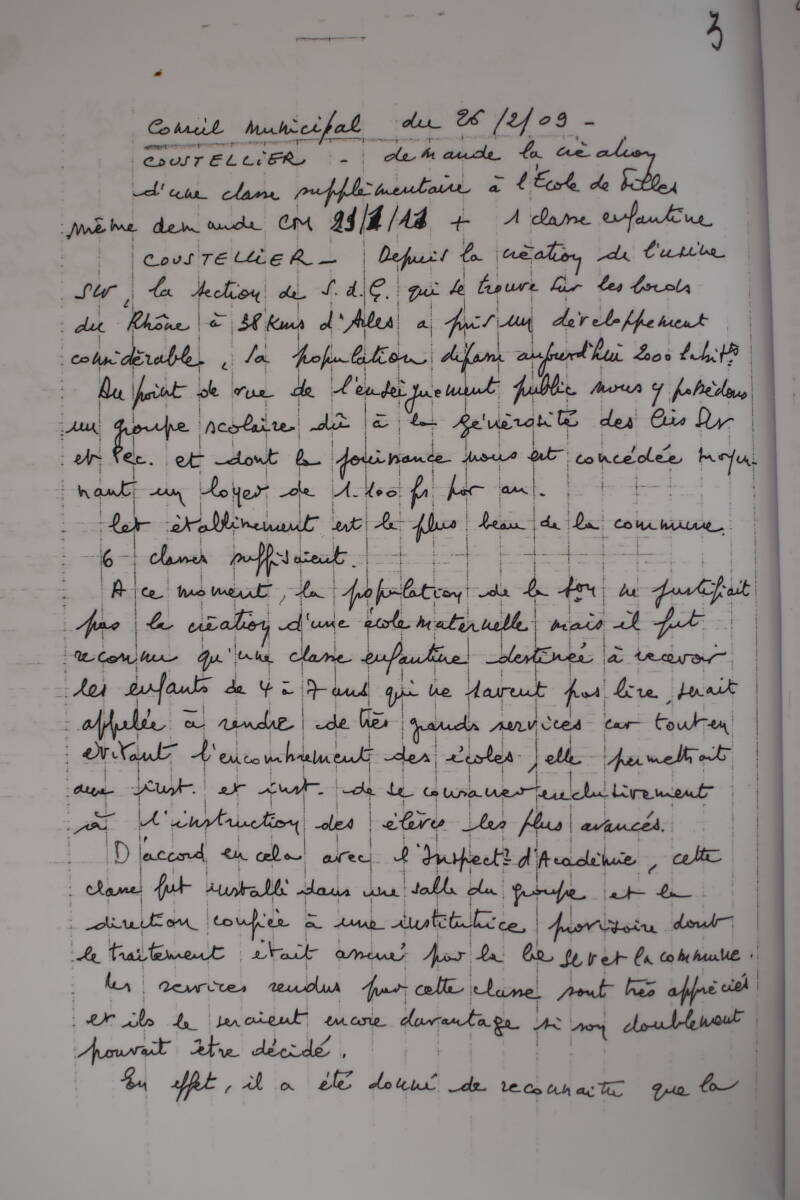 3
Conseil Municipal du 26/2/09 -
COUSTELLIER - demande la création
d'une classe supplémentaire à l'École de Filles
même demande CM 29/1/11 + 1 classe enfantine
COUSTELLIER - Depuis la création de l'usine
, la section de S.d.G. qui se trouve sur les bords
du Rhône à 38 Kms d'Arles a pris un développement
considérable, sa population dépasse aujourd'hui 2000 habitts
Au point de vue de l'enseignement public nous y possédons
un groupe scolaire dû à la générosité des Cies
et Pec. et dont la jouissance nous est concédée moyen-
nant un loyer de 1.100 fs par an.
Cet établissement est le plus beau de la commune.
6 classes suffisaient.
A ce moment, la population de la son ne justifiait
pas la création d'une école maternelle mais il fut
reconnu qu'une classe enfantine destinée à recevoir
les enfants de 4 à 7 ans qui ne savent pas lire, serait
appelée à rendre de très grands services car tout en
évitant l'encombrement des écoles, elle permettrait
aux inst. et inst. de se consacrer exclusivement
à l'instruction des élèves les plus avancés.
D'accord en cela avec l'Inspectr d'Académie, cette
classe fut installé dans une salle du groupe et la
direction confiée à une institutrice provisoire dont
le traitement était assuré par la Cie et la commune.
Les services rendus par cette classe sont très appréciés
et ils le seraient encore davantage si son doublement
pouvait être décidé.
En effet, il a été donné de reconnaitre que la